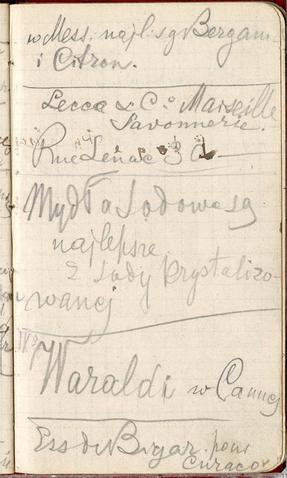 w Mess. najl. są Bergam-
i Citron.
Lecca & Cº Marseille
Savonnerie.
Rue 30
Mydła sodowe są
najlepsze
z sody krystalizo-
wanej
Waraldi w Cannes
Ess de Bigar. pour
Curacao